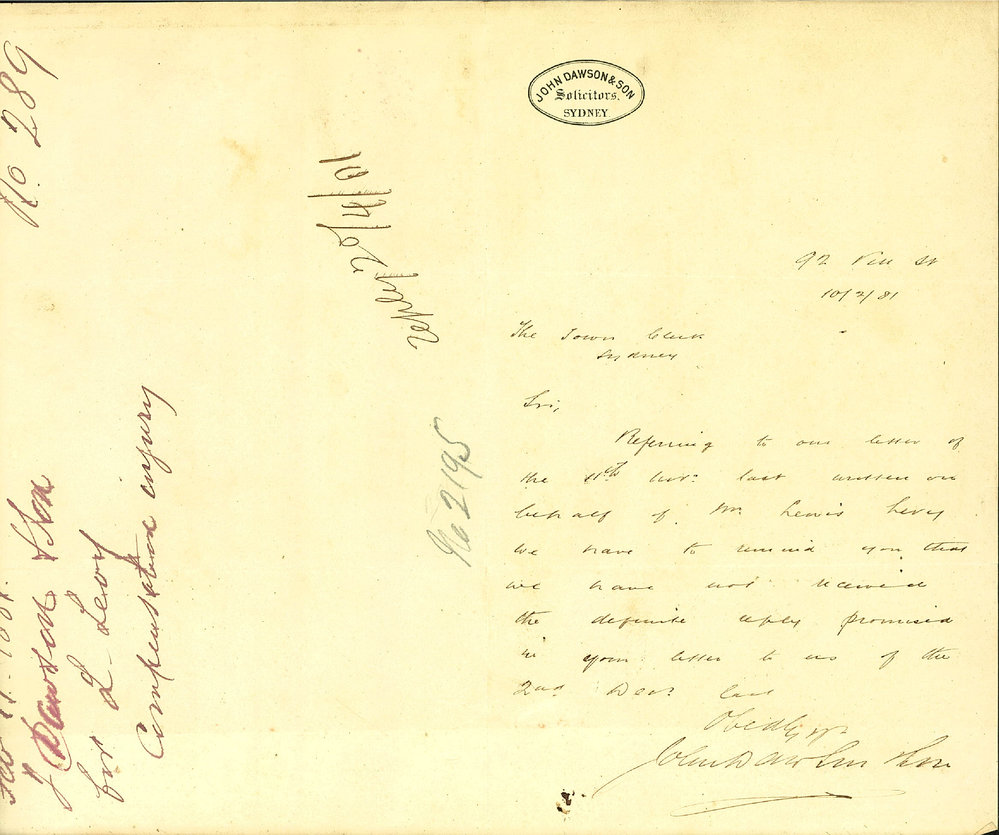 JOHN DAWSON & SON
Solicitors.
SYDNEY.
92 Pitt St
10/2/81
The Town Clerk
Sydney
Sir,
Referring to our letter of
the 11th Novr. last written on
behalf of Mr Lewis Levy
we have to remind you that
we have not received
the definite reply promised
in your letter to us of the
2nd Decr. last
John Dawson & Son
No 2195
No. 289
J Dawson & Son
for L Levy
Compensation injury